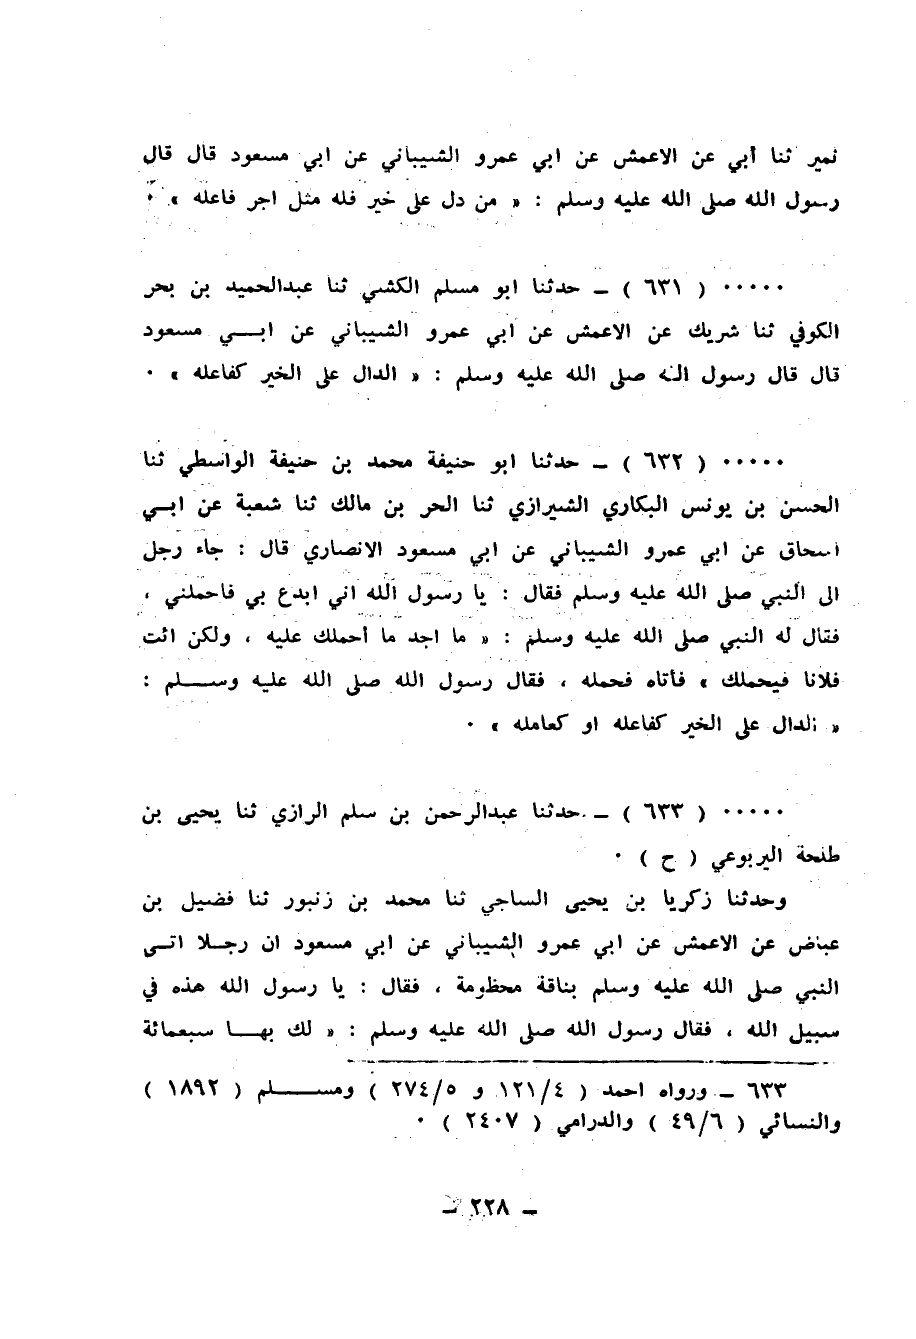 نمير ثنا أبي عن الاعمش عن ابي عمرو الشيباني عن ابي مسعود قال قال
رسول الله صلى الله عليه وسلم : « من دل على خير فله مثل اجر فاعله » ٠
٠٠٠٠٠ ( ٦٣١ ) ـ حدثنا ابو مسلم الكشي ثنا عبدالحميد بن بحر
الكوفي ثنا شريك عن الاعمش عن ابي عمرو الشيباني عن ابـــي مسعود
قال قال رسول الله صلى الله عليه وسلم : « الدال على الخير كفاعله » ٠
٠٠٠٠٠ ( ٦٣٢ ) ـ حدثنا ابو حنيفة محمد بن حنيفة الواسطي ثنا
الحسن بن يونس البكاري الشيرازي ثنا الحر بن مالك ثنا شعبة عن ابـي
اسحاق عن ابي عمرو الشيباني عن ابي مسعود الانصاري قال : جاء رجل
الى النبي صلى الله عليه وسلم فقال : يا رسول الله اني ابدع بي فاحملني ،
فقال له النبي صلى الله عليه وسلم : « ما اجد ما أحملك عليه ، ولكن ائت
فلانا فيحملك » فأتاه فحمله ، فقال رسول الله صلى الله عليه وســـلم :
« الدال على الخير كفاعله او كعامله » ٠
٠٠٠٠٠ ( ٦٣٣ ) ـ حدثنا عبدالرحمن بن سلم الرازي ثنا يحيى بن
طلحة اليربوعي ( ح ) ٠
وحدثنا زكريا بن يحيى الساجي ثنا محمد بن زنبور ثنا فضيل بن
عياض عن الاعمش عن ابي عمرو الشيباني عن ابي مسعود ان رجـلا اتـى
النبي صلى الله عليه وسلم بناقة مخطومة ، فقال : يا رسول الله هذه في
سبيل الله ، فقال رسول الله صلى الله عليه وسلم : « لك بهـــا سبعمائة
٦٣٣ ـ ورواه احمد ( ٤/١٢١ و ٥/٢٧٤ ) ومســـــلم ( ١٨٩٢ )
والنسائي ( ٦/٤٩ ) والدرامي ( ٢٤٠٧ ) ٠
ـ ٢٢٨ ـ